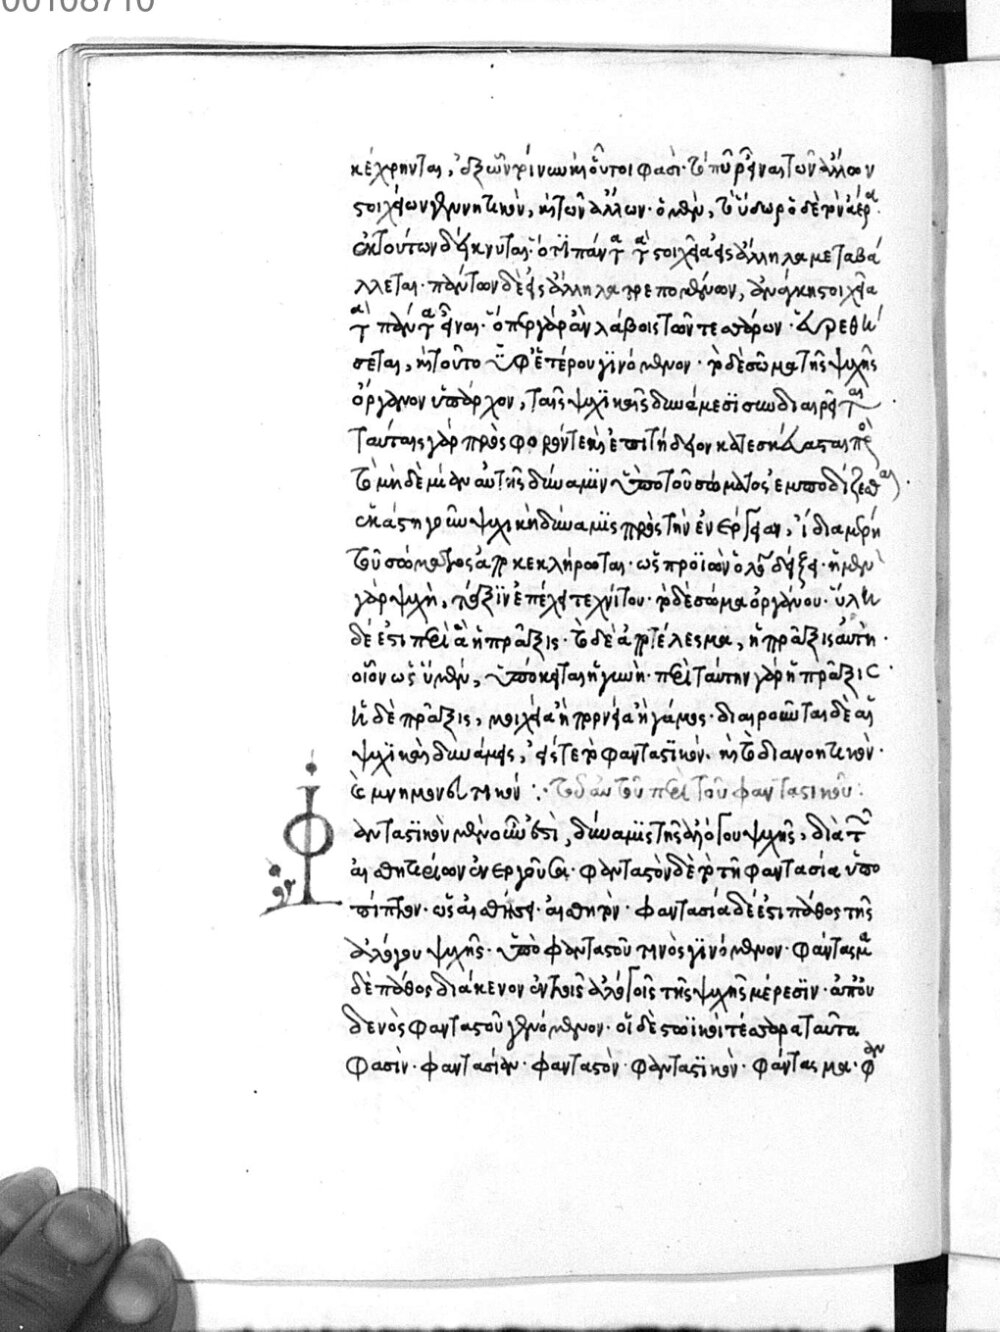 00108710
κέχρηνται, ἐξ ὧν κρίνων καὶ οὗτοι φασί· τὸ πῦρ εἶναι τῶν ἄλλων
στοιχείων γεννητικὸν, καὶ τῶν ἄλλων· ὁ μὲν, τὸ ὕδωρ ὁ δὲ τὸν ἀέρα·
ἐκ τούτων δείκνυται· ὅτι πάντα τὰ στοιχεῖα εἰς ἄλληλα μεταβά
λλεται· πάντων δὲ εἰς ἄλληλα τρεπομένων, ἀνάγκη στοιχεῖα
τὰ πάντα εἶναι· ὅπερ γὰρ ἂν λάβοις τῶν τεσσάρων· εὑρεθή
σεται, καὶ τοῦτο ὑφ' ἑτέρου γινόμενον· τὸ δὲ σῶμα τῆς ψυχῆς
ὄργανον ὑπάρχον, ταῖς ψυχικαῖς δυνάμεσι συνδιαιρεῖται·
ταύταις γὰρ πρόσφορόν τε καὶ ἐπιτήδειον κατεσκεύασται πρὸς
τὸ μηδεμίαν αὐτῆς δύναμιν ὑπὸ τοῦ σώματος ἐμποδίζεσθαι·
ἑκάστη γοῦν ψυχικὴ δύναμις πρὸς τὴν ἐνέργειαν, ἴδια μόρια
τοῦ σώματος ἀποκεκλήρωται· ὡς προϊὼν ὁ λόγος δείξει· ἡ μὲν
γὰρ ψυχὴ, τάξιν ἐπέχει τεχνίτου· τὸ δὲ σῶμα ὀργάνου· ὕλη
δέ ἐστι περὶ ἃ ἡ πρᾶξις· τὸ δὲ ἀποτέλεσμα, ἡ πρᾶξις αὐτή·
οἷον ὡς ὕλη μὲν, ὑπόκειται ἡ γυνὴ· περὶ ταύτην γὰρ ἡ πρᾶξις·
ἡ δὲ πρᾶξις, μοιχεία ἢ πορνεία ἢ γάμος· διαιροῦνται δὲ αἱ
ψυχικαὶ δυνάμεις, εἴς τε τὸ φανταστικὸν. καὶ τὸ διανοητικὸν·
καὶ μνημονευτικόν :· τοῦ αὐτοῦ περὶ τοῦ φανταστικοῦ:
Φανταστικὸν μὲν οὖν ἐστὶ, δύναμις τῆς ἀλόγου ψυχῆς, διὰ τῶν
αἰσθητηρίων ἐνεργοῦσα· φανταστὸν δὲ τὸ τῇ φαντασία ὑπο
πίπτον· ὡς αἰσθήσει· αἰσθητόν· φαντασία δέ ἐστι πάθος τῆς
ἀλόγου ψυχῆς· ὑπὸ φανταστοῦ τινὸς γινόμενον· φάντασμα
δὲ πάθος διάκενον ἐν τοῖς ἀλόγοις τῆς ψυχῆς μέρεσιν· ἀπ' οὐ
δενὸς φανταστοῦ γενόμενον· οἱ δὲ στωϊκοὶ τέσσαρα ταῦτα
φασὶν· φαντασίαν· φανταστὸν· φανταστικὸν· φάντασμα· φαν